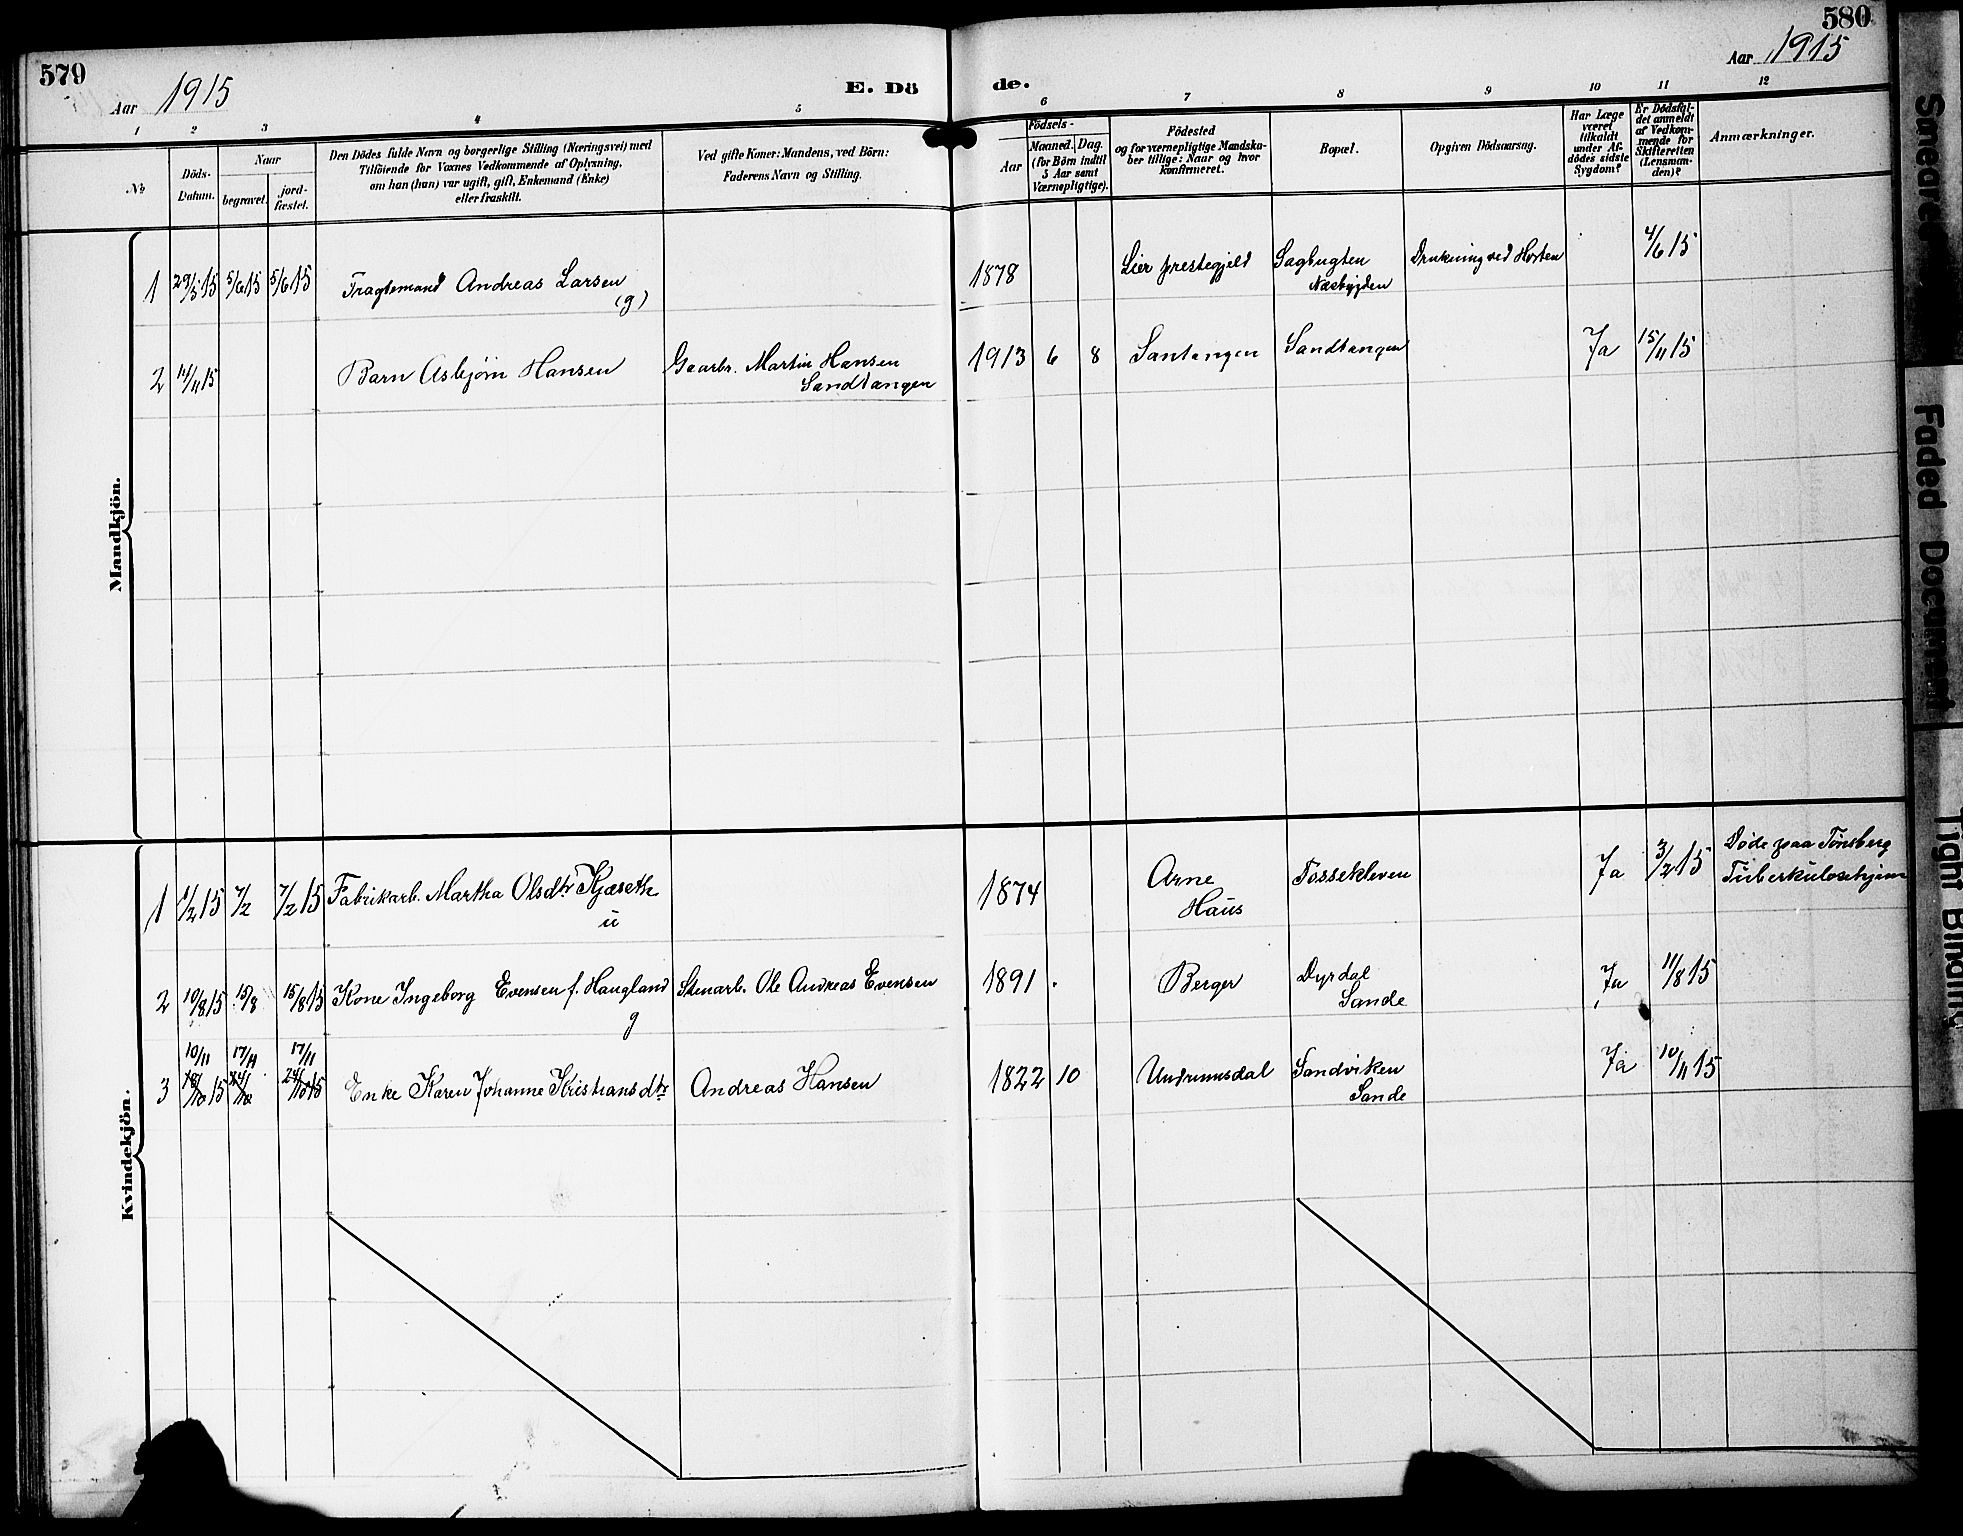 579
Aar 1915
E. Dö
de.
580
Aar 1915
1
2
3
4
5
6
7
8
9
10
11
12
No
Döds-
Datum.
Naar
begravet.
jord-
fæstet.
Den Dödes fulde Navn og borgerlige Stilling (Næringsvei) med
Tilföiende for Voxnes Vedkommende af Oplysning,
om han (hun) var ugift, gift, Enkemand (Enke)
eller fraskilt.
Ved gifte Koner: Mandens, ved Börn:
Faderens Navn og Stilling.
Födsels-
Aar
Maaned.
Dag.
(for Börn indtil
5 Aar samt
Værnepligtige).
Födested
og for værnepligtige Mandska-
ber tillige: Naar og hvor
konfirmeret.
Bopæl.
Opgiven Dödsaarsag.
Har Læge
været
tilkaldt
under Af-
dödes sidste
Sygdom?
Er Dödsfal-
det anmeldt
af Vedkom-
mende for
Skifteretten
(Lensman-
den)?
Anmærkninger.
Mandkjön.
1 29/5 15 5/6 15 5/6 15 Fragtemand Andreas Larsen 1878 Lier prestegjeld Sagbugten Drukning ved Horten 4/6 15
(g) Næsbygden
2 11/11 15 Barn Asbjørn Hansen Gaarbr. Martin Hansen 1913 6 8 Santangen Sandtangen Ja 15/11 15
Sandtangen
Kvindekjön.
1 1/2 15 7/2 7/2 15 Fabrikarb. Martha Olsdtr Kjæseth 1874 Arne Fossekleven Ja 3/2 15 Døde paa Tønsberg
u Haus Tuberkulosehjem
2 10/8 15 15/8 15/8 15 Kone Ingeborg Evensen f. Haugland Stenarb. Ole Andreas Evensen 1891 Berger Dyrdal Ja 11/8 15
g Sande
10/11 17/11 17/11
3 15 15 Enke Karen Johanne Kristiansdtr Andreas Hansen 1822 10 Undrumsdal Sandviken Ja 10/11 15
Sande
Smeared
Faded Document
Tight Binding